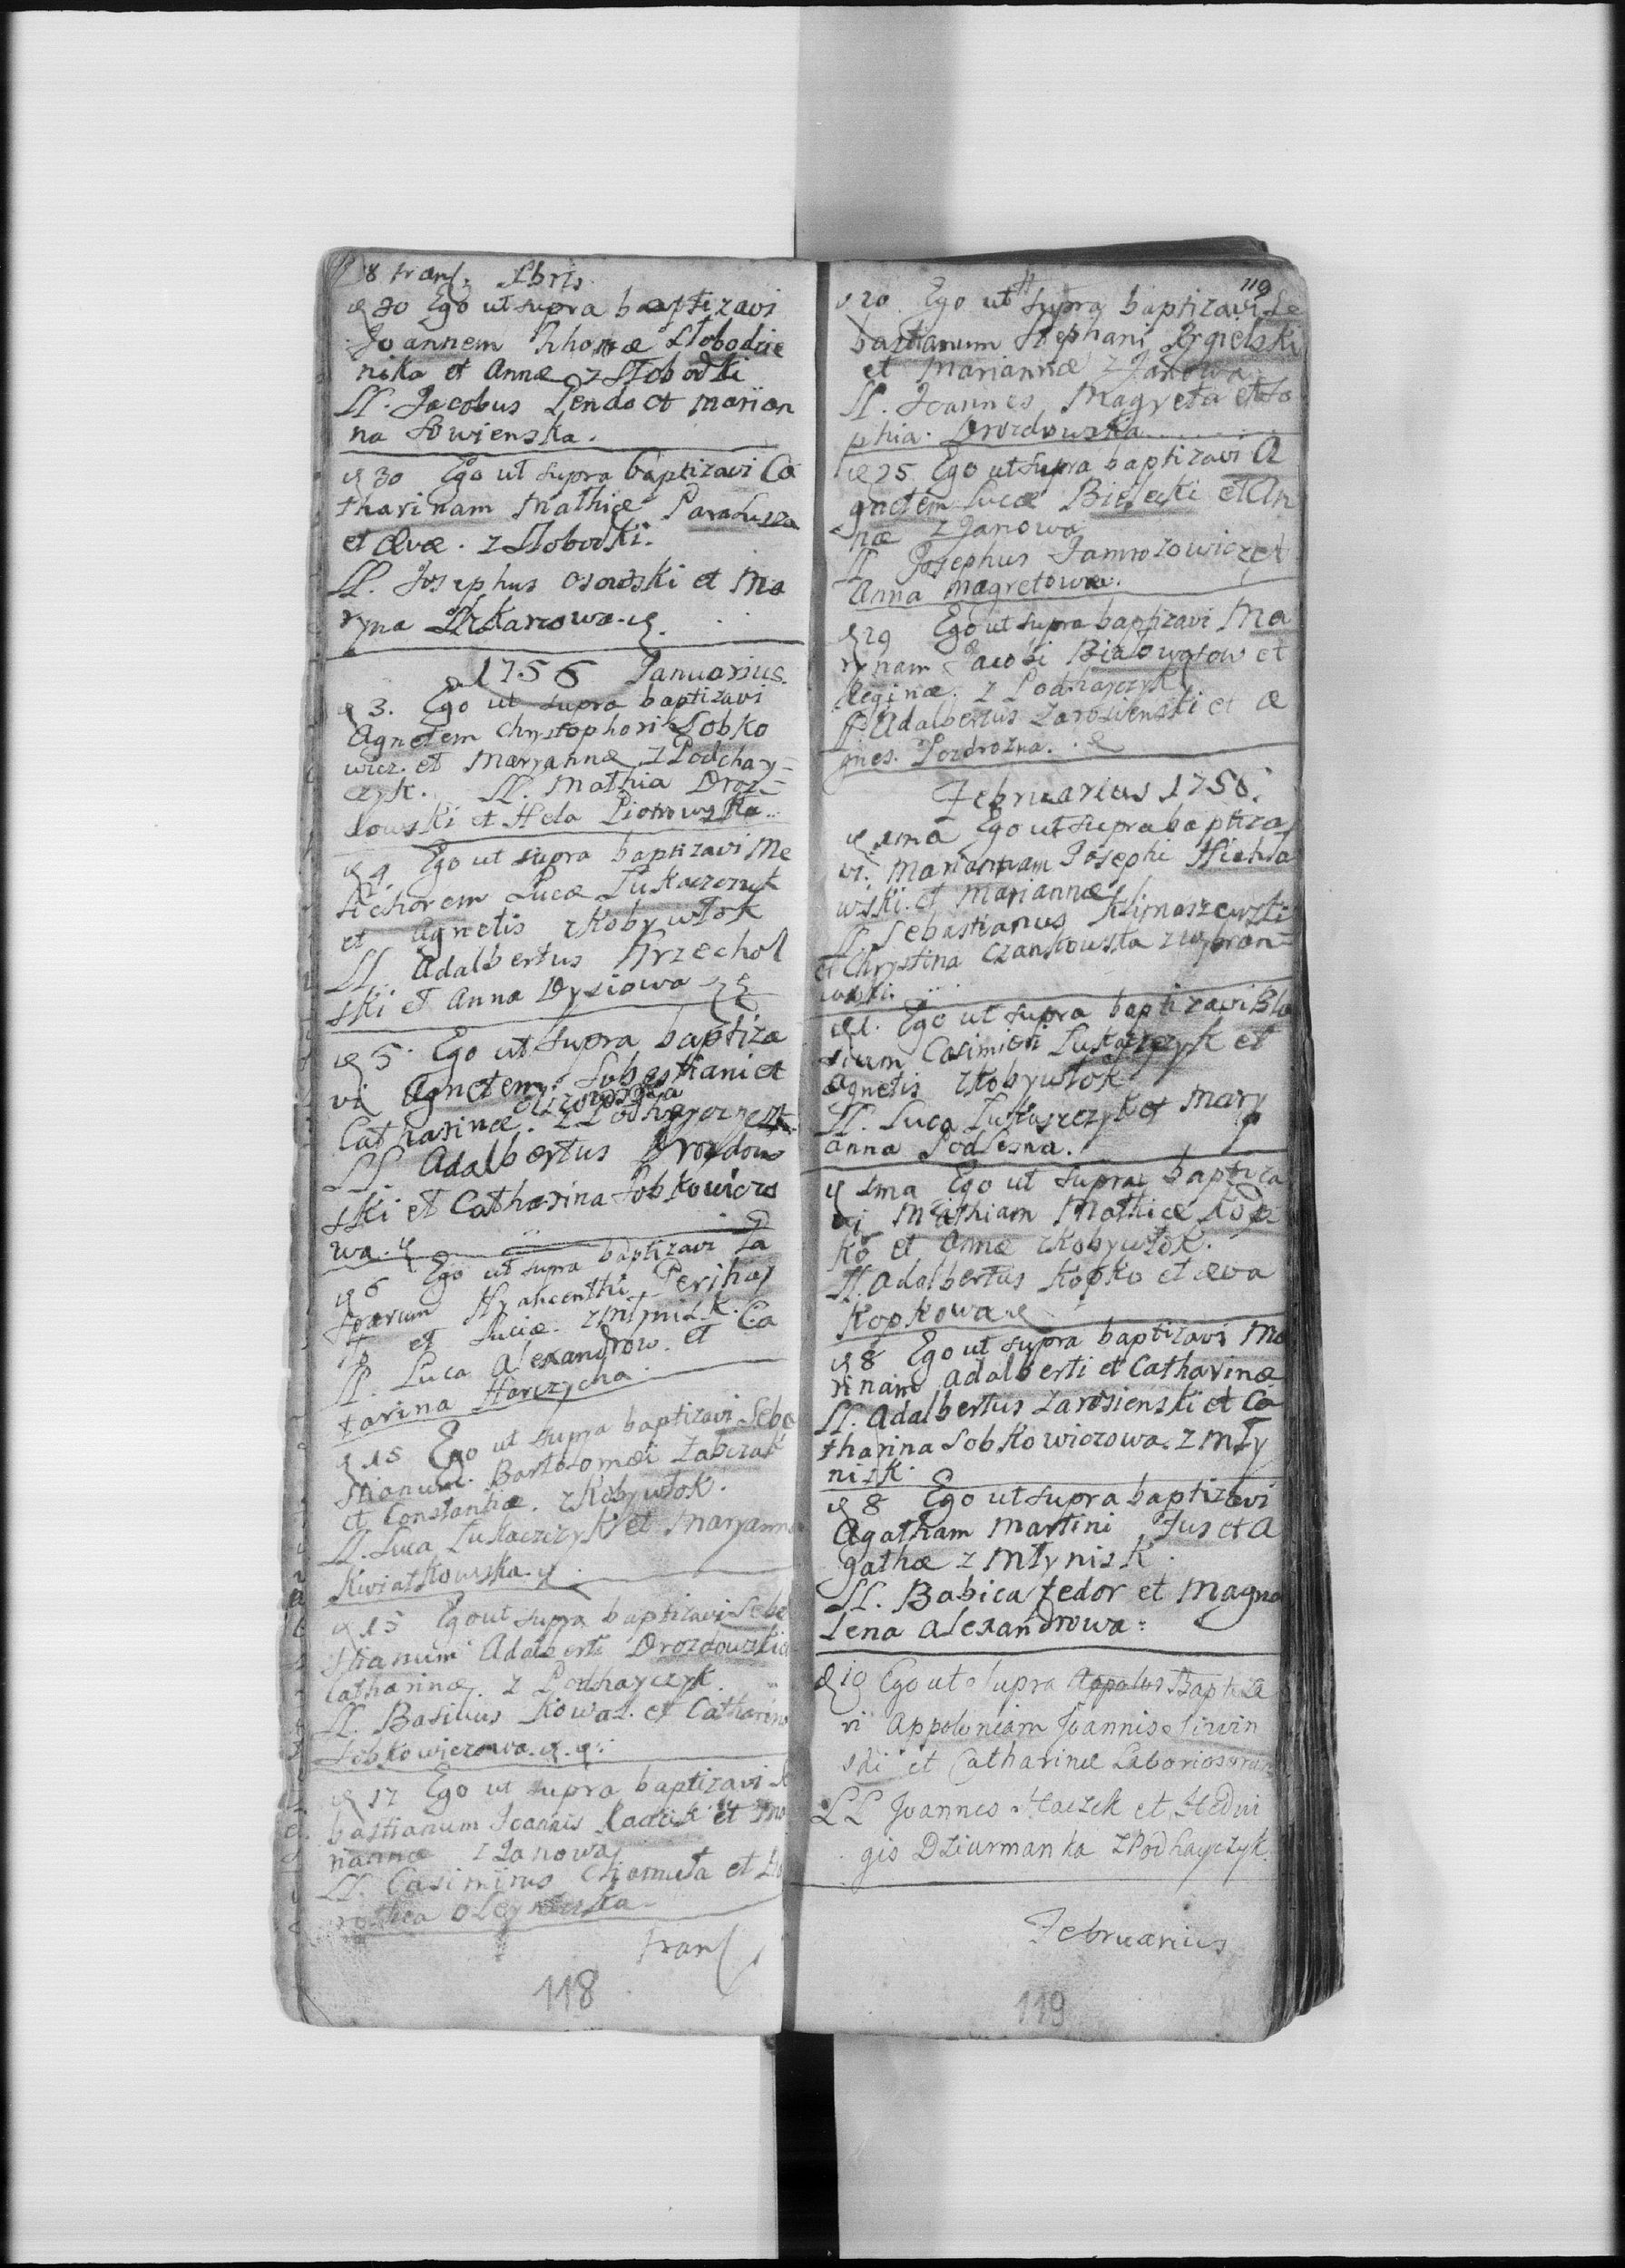 118 trans. Xbris
30 Ego ut supra baptizavi
Joannem Thomæ Słobodzie
nika et Annæ z Słobodki
LL. Jacobus Lenda et Marian
na Sowienska.
30 Ego ut supra baptizavi Ca
tharinam Mathiæ Paradusza
et Ævæ. z Słobodki.
LL. Josephus Osowski et Ma
ryna
1756 Januarius.
3. Ego ut supra baptizavi
Agnetem Chrystophori Sobko
wicz. et Maryannæ z Podchay=
czyk. LL. Mathia Droz=
dowski et Hela Piotrowska
4 Ego ut supra baptizavi Me
lichorem Lucæ Łukaczczyk
et Agnetis z Kobywłok
LL. Adalbertus Krzechol
ski et Anna Dysiowa
5 Ego ut supra baptiza
vi Agnetem Sebestiani et
Catharinæ. z Podhayczyk
LL. Adalbertus Drozdow
ski et Catharina Sobkowiczo
wa.
6 Ego ut supra baptizavi La
zarum Hyancenthi Perihas
et Luciæ. z Młynisk.
LL. Luca Alexandrow. et Ca
tarina Harczycha
15 Ego ut supra baptizavi Seba
stianum. Bartolomæi Zabczak
et Constantiæ. z Kobywłok.
LL. Luca Łukaczczyk et Maryanna
Kwiatkowska.
15 Ego ut supra baptizavi Seba
stianum Adalberti Drozdowski
Catharinæ. z Podhayczyk.
LL. Basilius Kowal. et Catharina
Sobkowiczowa.
17 Ego ut supra baptizavi Se
bastianum Joannis Radcik et Ma
riannæ z Janowa
LL. Casimirus Chomuta et Do
rothea
trans
118
119
20 Ego ut supra baptizavi Se
bastianum Stephani
et Mariannæ z Janowa
LL. Joannes Magreta et So
phia. Drozdowska
25 Ego ut supra baptizavi A
gnetem Lucæ Bielecki et An
næ z Janowa
LL Josephus Jamrozowicz et
Anna Magretowa.
29 Ego ut supra baptizavi Ma
rynam Jacobi Białowąsow et
Reginæ. z Podhayczyk
LL. Adalbertus Zarowienski et A
gnes. Pozdrozna.
Februarius 1756.
1ma Ego ut supra baptiza
vi. Mariannam Josephi
wski. et Mariannæ
LL. Sebastianus Klimaszewski
et Chrystina Czanskowska z
1. Ego ut supra baptizavi Bla
sium Casimiri Łukaszczyk et
Agnetis z Kobywłok
LL. Luca Łukaszczyk et Mary
anna Podlesna.
1ma Ego ut supra baptiza
vi Mathiam Mathiæ Kop
ko et Annæ z Kobywłok.
LL. Adalbertus Kopko et Æva
Kopkowa
8 Ego ut supra baptizavi Ma
rinam Adalberti et Catharinæ
LL. Adalbertus Zarosienski et Ca
tharina Sobkowiczowa. z Mły
nisk.
8 Ego ut supra baptizavi
Agatham Martini Jus et A
gathæ z Młynisk.
LL. Babica Fedor et Magna
lena Alexandrowa:
19 Ego ut supra Baptiza
vi Appoloniam Joannis Siwin
sdi et Catharinæ Laboriosorum
LL Joannes Haczek et Hedvi
gis Dziurmanka z Podhayczyk.
Februarius
119